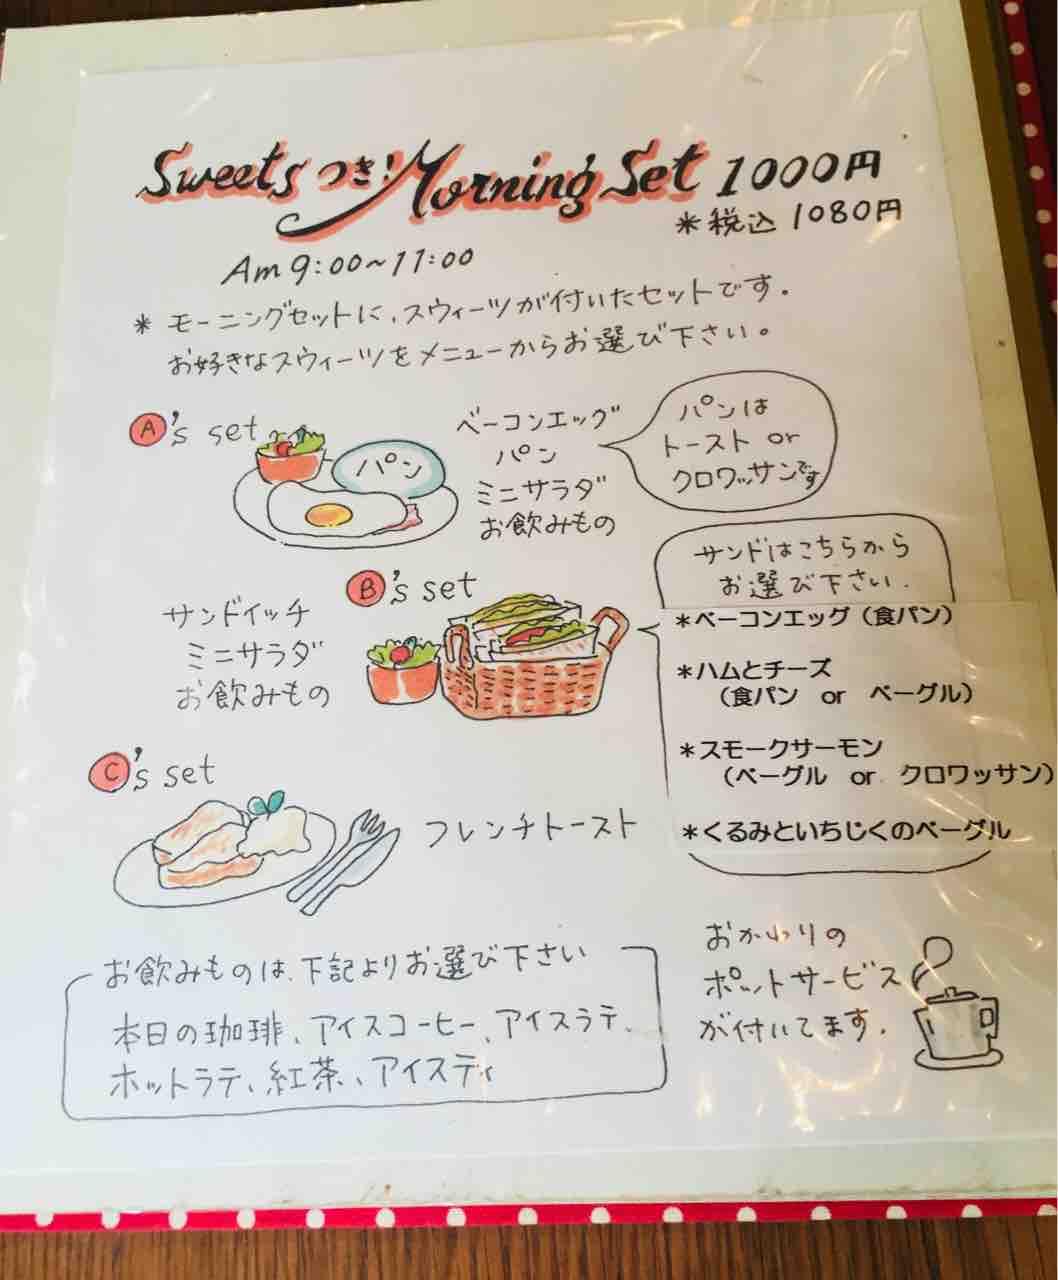 Sweetsつき!Morning Set 1000円
*税込1080円
Am 9:00~11:00
* モーニングセットに、スウィーツが付いたセットです。
お好きなスウィーツをメニューからお選び下さい。
A's set
パン
ベーコンエッグ
パン
ミニサラダ
お飲みもの
パンは
トースト or
クロワッサンです
B's set
サンドイッチ
ミニサラダ
お飲みもの
サンドはこちらから
お選び下さい.
*ベーコンエッグ(食パン)
*ハムとチーズ
(食パン or ベーグル)
*スモークサーモン
(ベーグル or クロワッサン)
*くるみといちじくのベーグル
C's set
フレンチトースト
お飲みものは、下記よりお選び下さい
本日の珈琲、アイスコーヒー、アイスラテ、
ホットラテ、紅茶、アイスティ
おかわりの
ポットサービス
が付いてます.